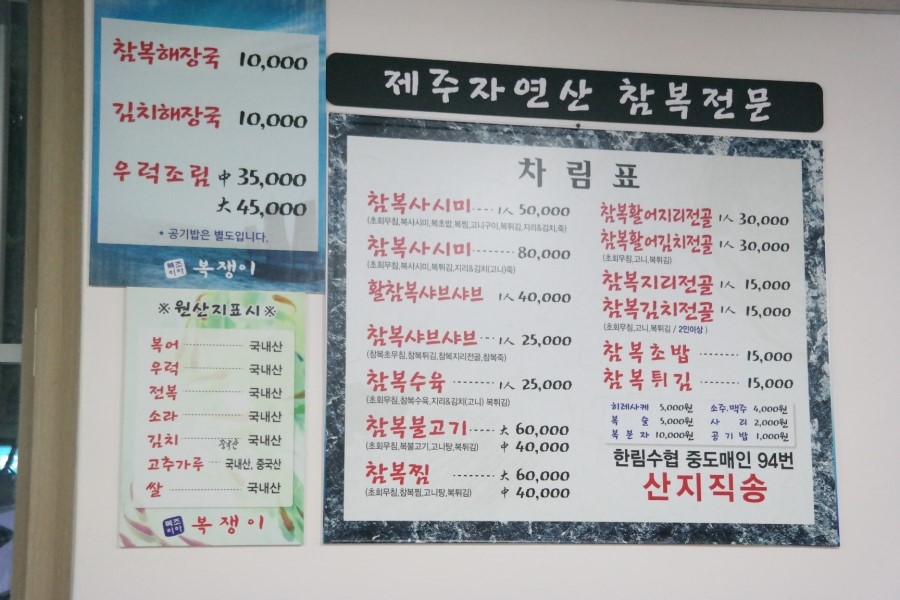 참복해장국 10,000
김치해장국 10,000
우럭조림 中 35,000
大 45,000
* 공기밥은 별도입니다.
복쟁이
※원산지표시※
복어 국내산
우럭 국내산
전복 국내산
소라 국내산
김치 국내산
고추가루 국내산, 중국산
쌀 국내산
복쟁이
제주자연산 참복전문
차림표
참복사시미 1人 50,000
(초회무침,복사시미,복초밥,복찜,고니구이,복튀김,지리&김치,죽)
참복사시미 80,000
(초회무침,복사시미,복튀김,지리&김치(고니)죽)
활참복샤브샤브 1人 40,000
참복샤브샤브 1人 25,000
(참복초무침,참복튀김,참복지리전골,참복죽)
참복수육 1人 25,000
(초회무침,참복수육,지리&김치(고니) 복튀김)
참복불고기 大 60,000
(초회무침,복불고기,고니탕,복튀김) 中 40,000
참복찜 大 60,000
(초회무침,참복찜,고니탕,복튀김) 中 40,000
참복활어지리전골 1人 30,000
참복활어김치전골 1人 30,000
(초회무침,고니,복튀김)
참복지리전골 1人 15,000
참복김치전골 1人 15,000
(초회무침,고니,복튀김 / 2인이상)
참복초밥 15,000
참복튀김 15,000
히레사케 5,000원 소주.맥주 4,000원
복 술 5,000원 사 리 2,000원
복분자 10,000원 공기밥 1,000원
한림수협 중도매인 94번
산지직송